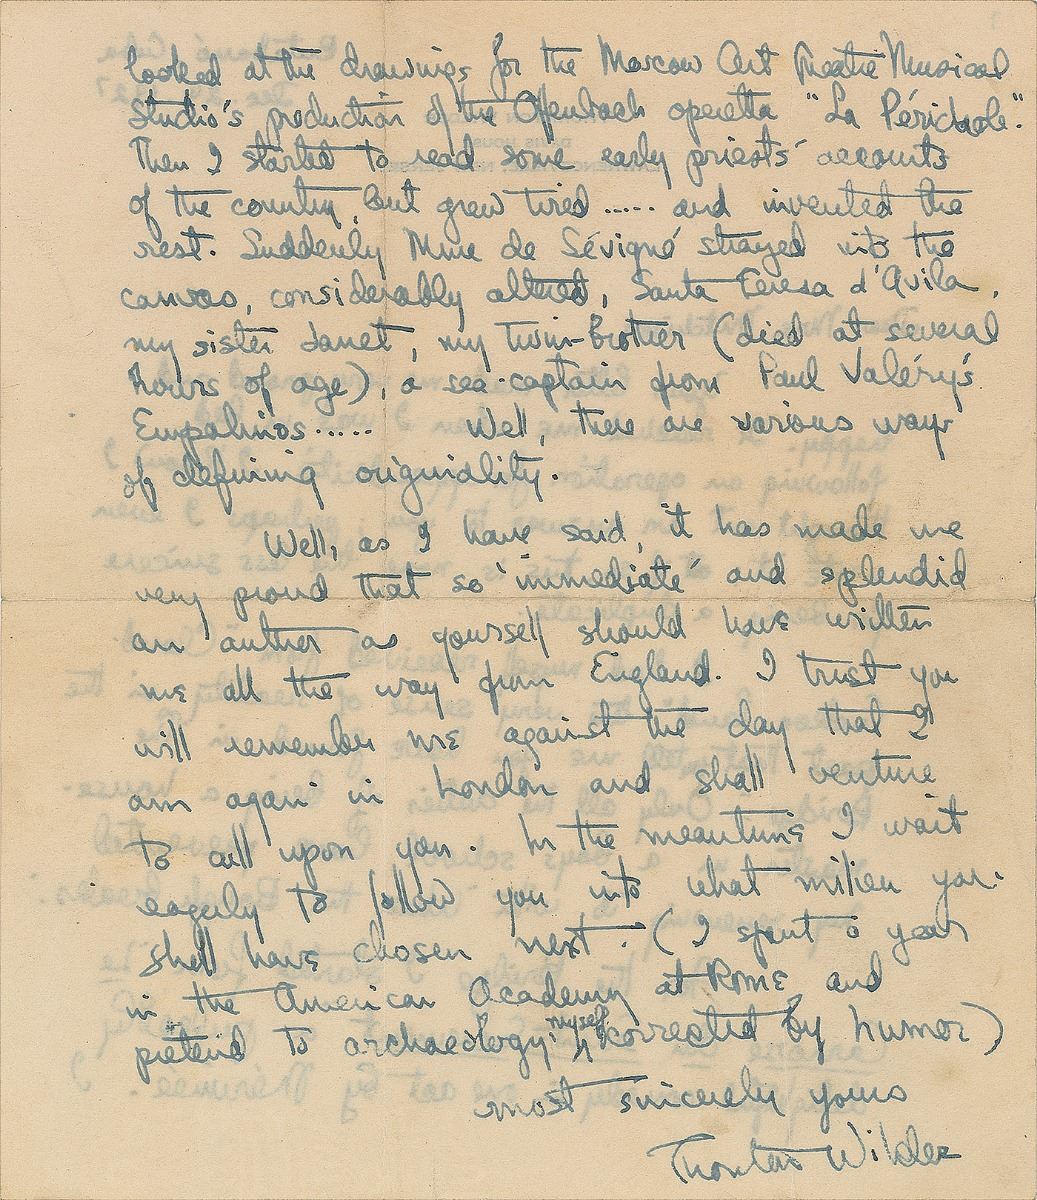 looked at the drawings for the Moscow Art Theatre Musical
Studio's production of the Offenbach operetta "La Périchole."
Then I started to read some early priests' accounts
of the country, but grew tired ..... and invented the
rest. Suddenly Mme de Sévigné strayed into the
canvas, considerably altered, Santa Teresa d'Avila,
my sister Janet, my twin-brother (died at several
hours of age), a sea-captain from Paul Valéry's
Eupalinos ..... Well, there are various ways
of defining originality.
Well, as I have said, it has made me
very proud that so 'immediate' and splendid
an author as yourself should have written
me all the way from England. I trust you
will remember me against the day that I
am again in London and shall venture
to call upon you. In the meantime I wait
eagerly to follow you into what milieu you
shall have chosen next. (I spent a year
in the American Academy at Rome and
pretend to archaeology myself, corrected by humor)
most sincerely yours
Thornton Wilder